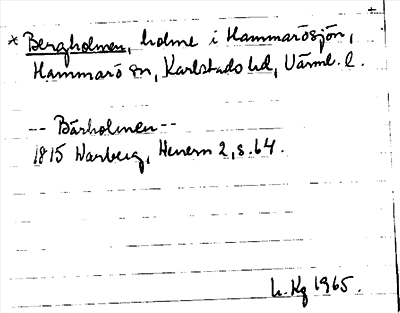 * Bergholmen, holme i Hammarösjön,
Hammarö sn, Karlstads hd, Värml. l.
-- Bärholmen --
1815 Warberg, Henern 2, s. 64.
h. Kg 1965.